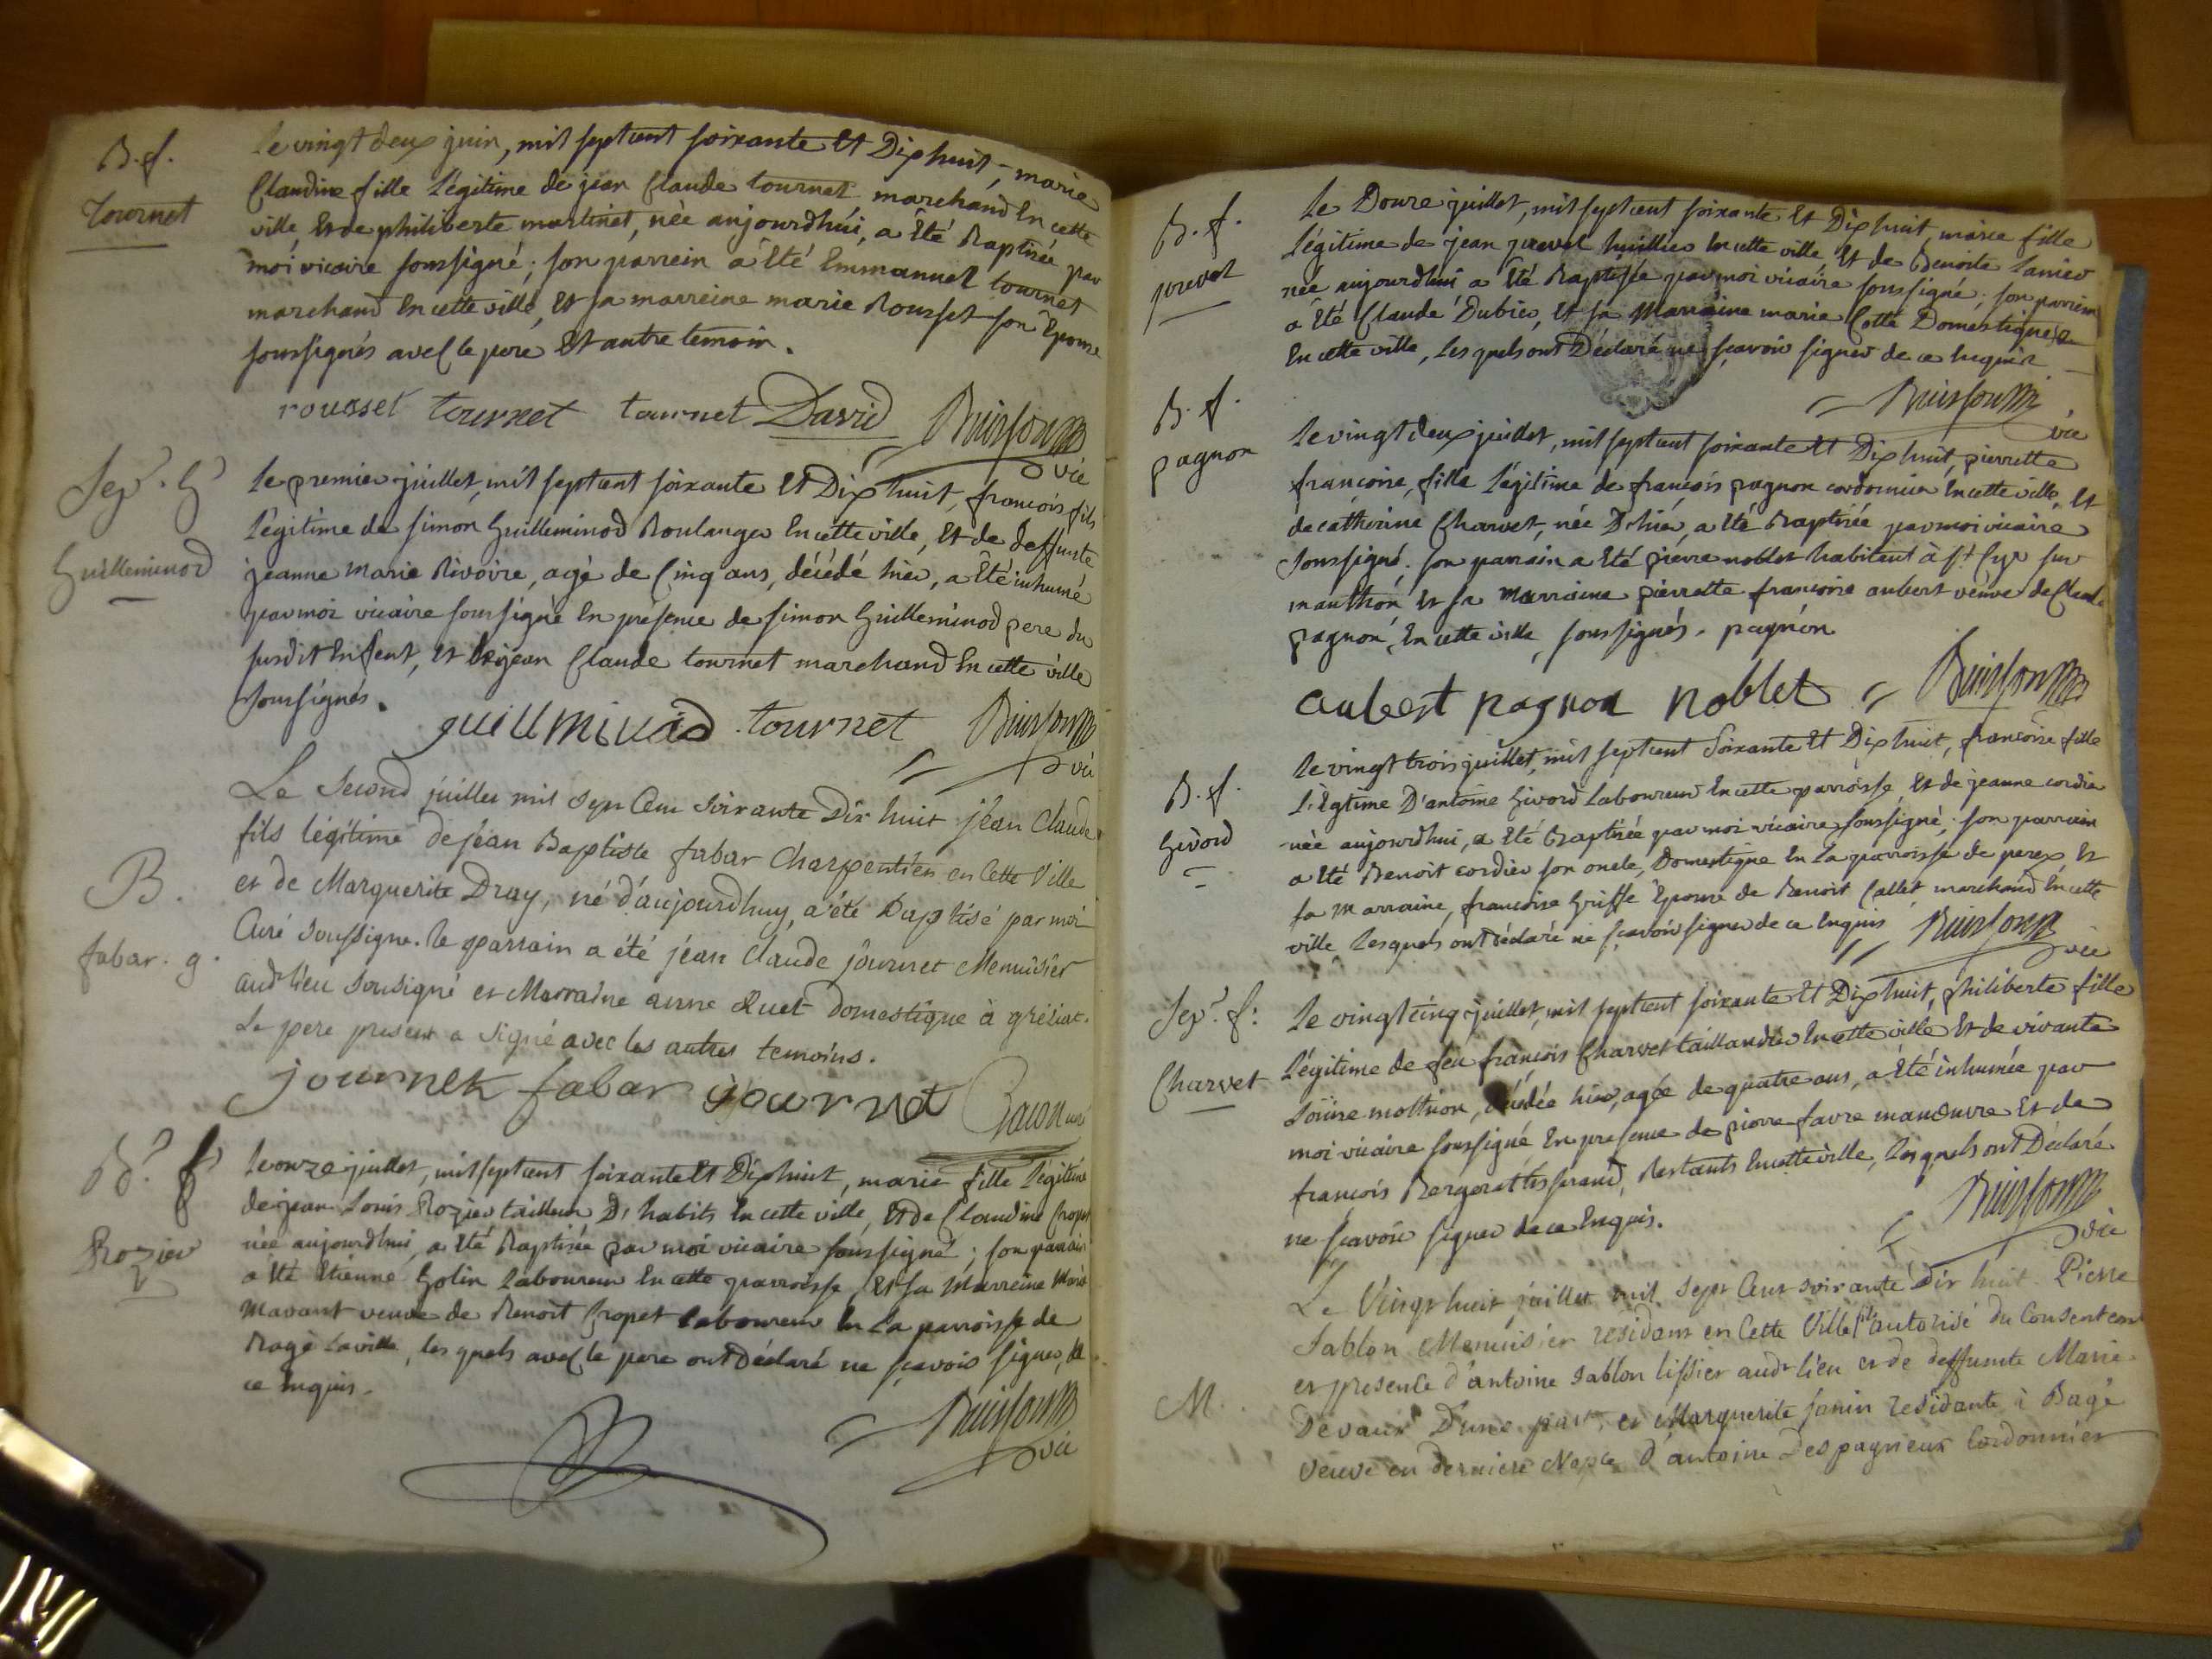 B. f.
Tournet
Le vingt deux juin, mil sept cent soixante Et Dix huit, marie
Claudine fille Légitime de jean Claude tournet marchand En cette
ville, Et de philiberte martinet, née aujourdhui, a Eté Baptisée par
moi vicaire soussigné; son parrein a Eté Emmanuel tournet
marchand En cette ville, Et sa marreine marie Rousset son Epouse
soussignés avec le pere Et autre temoin.
rousset tournet tournet David Buisson
vic
Sep.r G
Guilleminod
Le premier juillet, mil sept cent soixante Et Dix huit, francois fils
Légitime de simon Guilleminod Boulanger En cette ville, Et de deffunte
jeanne marie Rivoire, agé de Cinq ans, décédé hier, a Eté inhumé
par moi vicaire soussigné En présence de simon Guilleminod pere du
susdit Enfent, et de jean Claude tournet marchand En cette ville
soussignés.
guillminaud tournet Buisson
vic
B.
fabar. g.
Le Second juillet mil Sept Cent Soixante Dix huit jéan Claude
fils légitime de jéan Baptiste fabar Charpentier en Cette Ville
et de Marguerite Dray, né d'aujourdhuy, a été Baptisé par moi
Curé Soussigné. le parrain a été jéan Claude journet Menuisier
aud.t lieu Sousigné et Marraine anne Ruet domestique à
Le pere present a Signé avec les autres temoins.
journet fabar journet
curé
B. f
Rozier
Le onze juillet, mil sept cent soixante Et Dix huit, marie fille Légitime
de jean Louis Rozier tailleur D'habits En cette ville, Et de Claudine Cropet
née aujourdhui, a Eté Baptisée par moi vicaire soussigné; son parrain
a Eté Etienne Golin Laboureur En cette parroisse, Et sa marreine Marie
Mavant veuve de Benoit Cropet Laboureur En La parroisse de
Bagé La ville, les quels avec le pere ont Déclaré ne sçavoir signer, de
ce Enquis.
Buisson
vic
B. f.
prevet
Le Douze juillet, mil sept cent soixante Et Dix huit, marie fille
Légitime de jean prevet huillier En cette ville, Et de Benoite Lanier
née aujourdhui a Eté Baptisée par moi vicaire soussigné; son parrein
a Eté Claude Dubier, Et sa Marraine marie Cotte Domestiques
En cette ville, Les quels ont Déclaré ne sçavoir signer de ce Enquis
Buisson
vic
B. f.
pagnon
Le vingt deux juillet, mil sept cent soixante Et Dix huit, pierrette
francoise, fille Légitime de francois pagnon cordonnier En cette ville, Et
de catherine Charvet, née D'hier, a Eté Baptisée par moi vicaire
soussigné. son parrain a Eté pierre noblet habitant à S.t Cyr sur
manthon Et sa Marraine pierrette francoise aubert veuve de Claude
pagnon, En cette ville, soussignés. pagnon
aubert pagnon noblet Buisson
B. f.
Givord
Le vingt trois juillet, mil sept cent Soixante Et Dix huit, francoise fille
Légtime D'antoine Givord Laboureur En cette parroisse, Et de jeanne cordier
née aujourdhui, a Eté Baptisée par moi vicaire soussigné; son parrain
a Eté Benoit cordier son oncle, Domestique En La parroisse de perex Et
sa Marraine, francoise Griffe Epouse de Benoit Callet marchand En cette
ville, Lesquels ont déclaré ne sçavoir signer de ce Enquis Buisson
vic
Sep.r f:
Charvet
Le vingt cinq juillet, mil sept cent soixante Et Dix huit, philiberte fille
Légitime de feu francois Charvet taillandier En cette ville Et de vivante
Loüise mottion, décédée hier, agée de quatre ans, a Eté inhumée par
moi vicaire soussigné, En presence de pierre favre manoeuvre Et de
francois Bergerat tisserand, Restants En cette ville, Les quels ont Déclaré
ne sçavoir signer de ce Enquis.
Buisson
vic
M.
Le Vingt huit juillet mil Sept Cent soixante Dix huit Pierre
Sablon Menuisier residant en Cette Ville fils autorisé du Consentem
et presence d'antoine Sablon lissier aud.t lieu et de deffunte Marie
Devaux D'une part, et Marguerite janin residante à Bagé
veuve en derniere Nopce d'antoine Despagneux Cordonnier